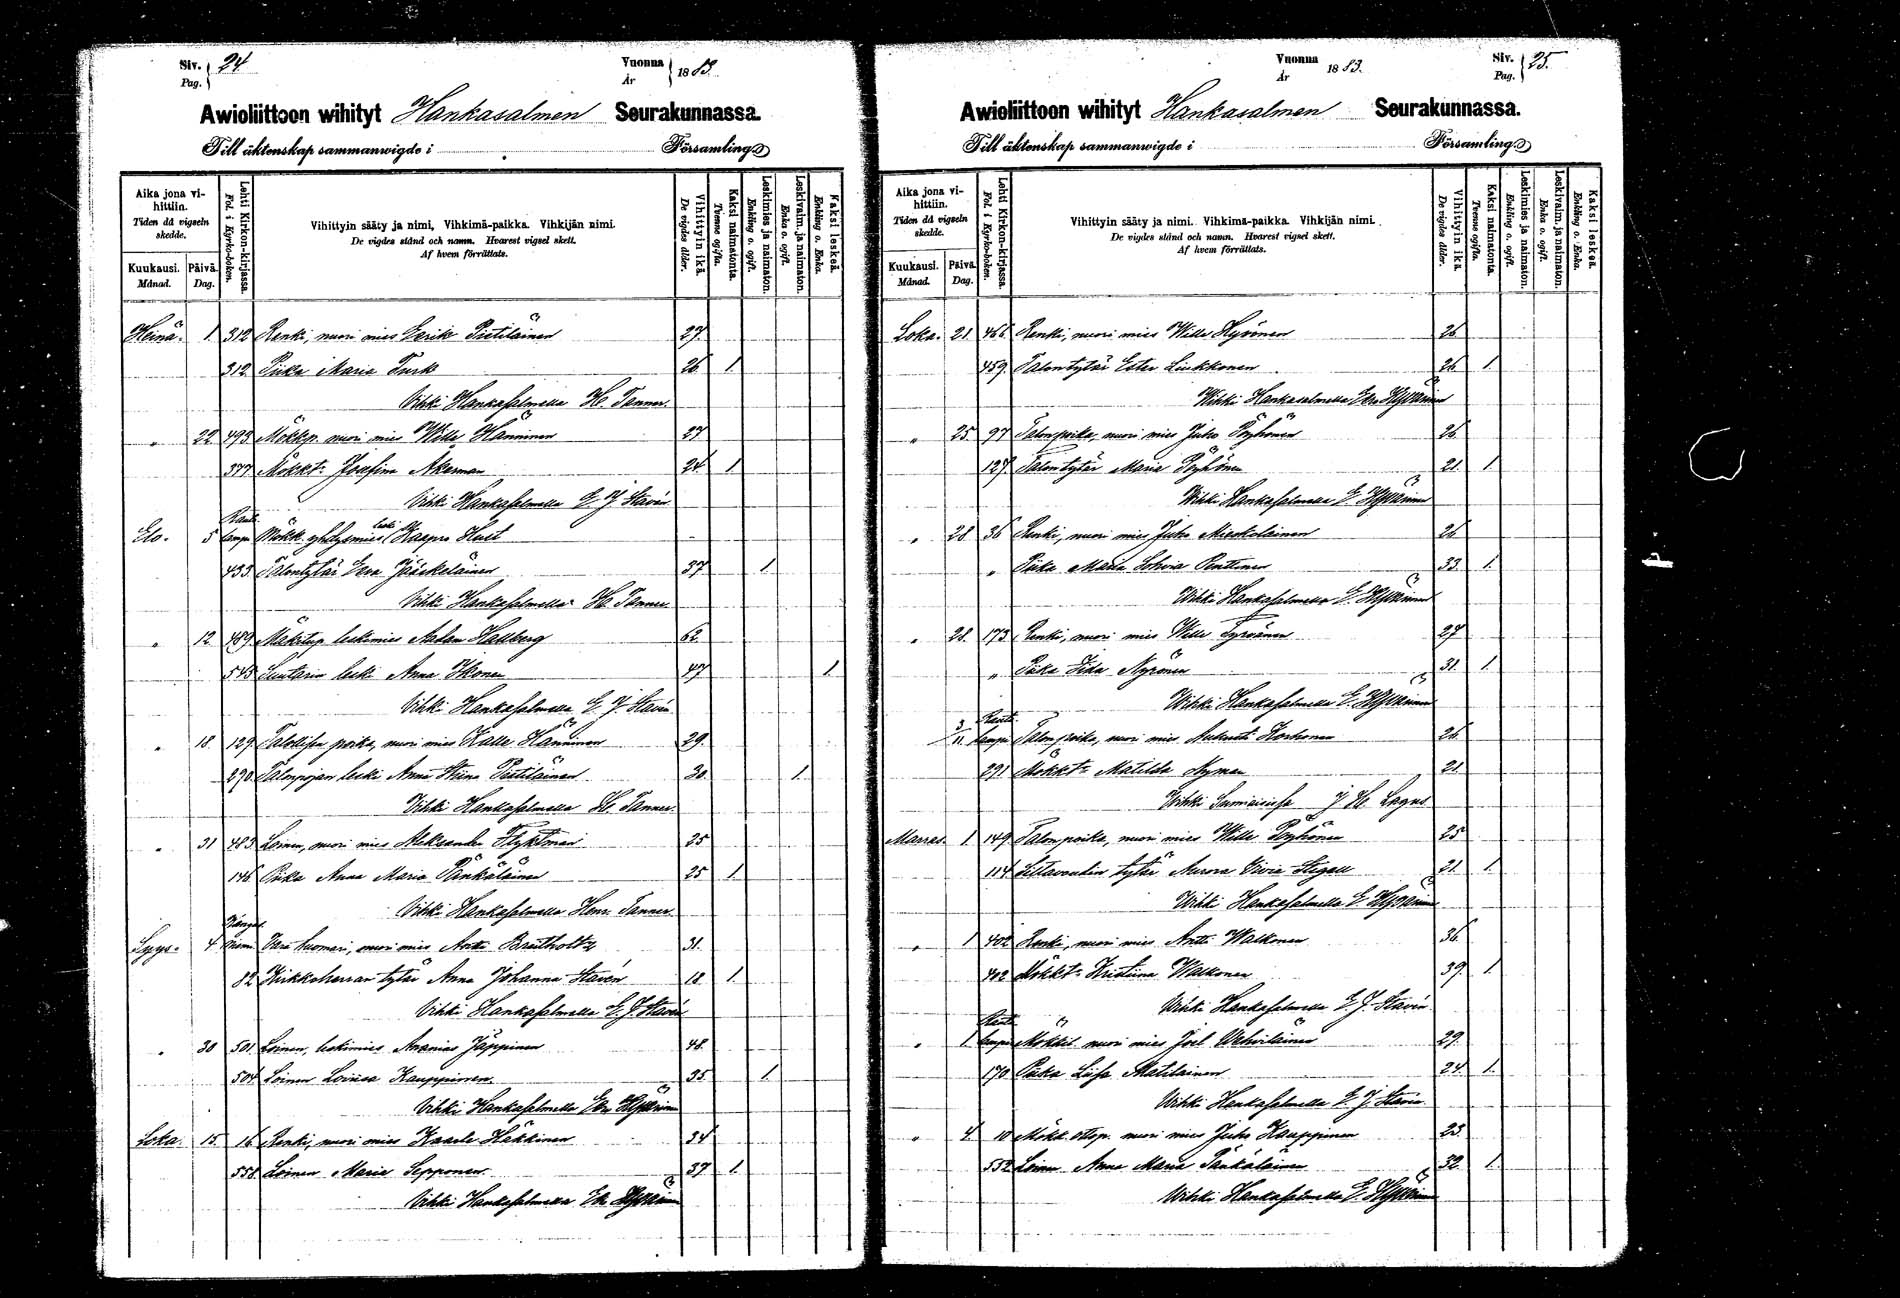 Siv. 24
Pag.
Vuonna
År 1883.
Awioliittoon wihityt Hankasalmen Seurakunnassa.
Till äktenskap sammanwigde i Församling
Aika jona vihittiin.
Tiden då vigseln skedde.
Kuukausi. Månad.
Päivä. Dag.
Lehti Kirkon-kirjassa.
Fol. i Kyrko-boken.
Vihittyin sääty ja nimi, Vihkimä-paikka. Vihkijän nimi.
De vigdes stånd och namn. Hvarest vigsel skett.
Af hvem förrättats.
Vihittyin ikä.
De vigdes ålder.
Kaksi naimatonta.
Tvenne ogifta.
Leskimies ja naimaton.
Enkling o. ogift.
Leskivaim. ja naimaton.
Enka o. ogift.
Kaksi leskeä.
Enkling o. Enka.
Heinä. 1. 312 Renki, nuori mies Eerik Pietiläinen 27.
312. Piika Maria Turk 26 1.
Vihki Hankasalmella H. Tanner.
" 22. 493. Mökkp. nuori mies Wille Hänninen 27
377 Mökkt: Josefina Akerman 24 1
Vihki Hankasalmella E J Stavén
Elo. 5 Rautalampi Mökk. yhtysmies leski Kaspro Hult
433. Talontytär Eeva Jääskeläinen 37 1.
Vihki Hankasalmella H. Tanner
" 12. 489. Mäkitup leskimies Aadam Hallberg 62
545 Suutarin leski Anna Ikonen 47 1.
Vihki Hankasalmella E. J. Stavén
" 18. 129. Talollisen poika, nuori mies Kalle Hänninen 29.
290. Talonpojan leski Anna Stiina Pietiläinen 30. 1.
Vihki Hankasalmella H. Tanner.
" 31 483. Loinen, nuori mies Aleksander Flyktman 25
146. Piika Anna Maria Pänkäläinen 25 1
Vihki Hankasalmella Henr. Tanner
Syys. 4 nuori mies Antti Breitholtz 31.
82 Kirkkoherran tytär Anna Johanna Stavén 18. 1.
Vihki Hankasalmella E. J. Stavén
" 30 501. Loinen, leskimies Ananias Jäppinen 48.
504 Loinen Loviisa Kauppinen. 35. 1.
Vihki Hankasalmella
Loka 15. 16. Renki, nuori mies Kaarle Häkkinen 34
558. Loinen Maria Sepponen 37 1.
Vihki Hankasalmella
Vuonna
År 1883.
Siv. 25.
Pag.
Awioliittoon wihityt Hankasalmen Seurakunnassa.
Till äktenskap sammanwigde i Församling
Aika jona vihittiin.
Tiden då vigseln skedde.
Kuukausi. Månad.
Päivä. Dag.
Lehti Kirkon-kirjassa.
Fol. i Kyrko-boken.
Vihittyin sääty ja nimi. Vihkimä-paikka. Vihkijän nimi.
De vigdes stånd och namn. Hvarest vigsel skett.
Af hvem förrättats.
Vihittyin ikä.
De vigdes ålder.
Kaksi naimatonta.
Tvenne ogifta.
Leskimies ja naimaton.
Enkling o. ogift.
Leskivaim. ja naimaton.
Enka o. ogift.
Kaksi leskeä.
Enkling o. Enka.
Loka. 21. 466. Renki, nuori mies Wille Hyvönen 26
459. Talontytär Ester Liukkonen 26 1.
Wihki Hankasalmella
" 25. 97 Talonpoika, nuori mies Juho Pöyhönen 26
127. Talontytär Maria Pöyhönen 21. 1.
Wihki Hankasalmella
" 28 36 Renki, nuori mies Juho Mieskolainen 26
" Piika Maria Sohvia Penttinen 33. 1.
Wihki Hankasalmella
" 28. 173 Renki, nuori mies Wille Tyrväinen 27
" Piika Iida Nyrönen 31. 1.
Wihki Hankasalmella
3/11. Rautalampi Talonpoika, nuori mies Aukusti Korhonen 26
291 Mökkt: Matilda Nyman 21.
Wihki Sumiaisissa J H. Lagus.
Marras. 1. 149. Talonpoika, nuori mies Wille Pöyhönen 25
114 tytär Aurora Stigell 21. 1.
Wihki Hankasalmella
" 1 402 Renki, nuori mies Antti Walkonen 36
402 Mökkt: Kristiina Walkonen 39. 1.
Wihki Hankasalmella E. J. Stavén.
" 1. Rautalampi nuori mies Joel Vehviläinen 29.
170 Piika Liisa Matilainen 24 1.
Wihki Hankasalmella E. J. Stavén
" 4 10 Mökk ottop. nuori mies Juho Kauppinen 23.
552 Loinen Anna Maria Pänkäläinen 32. 1.
Wihki Hankasalmella